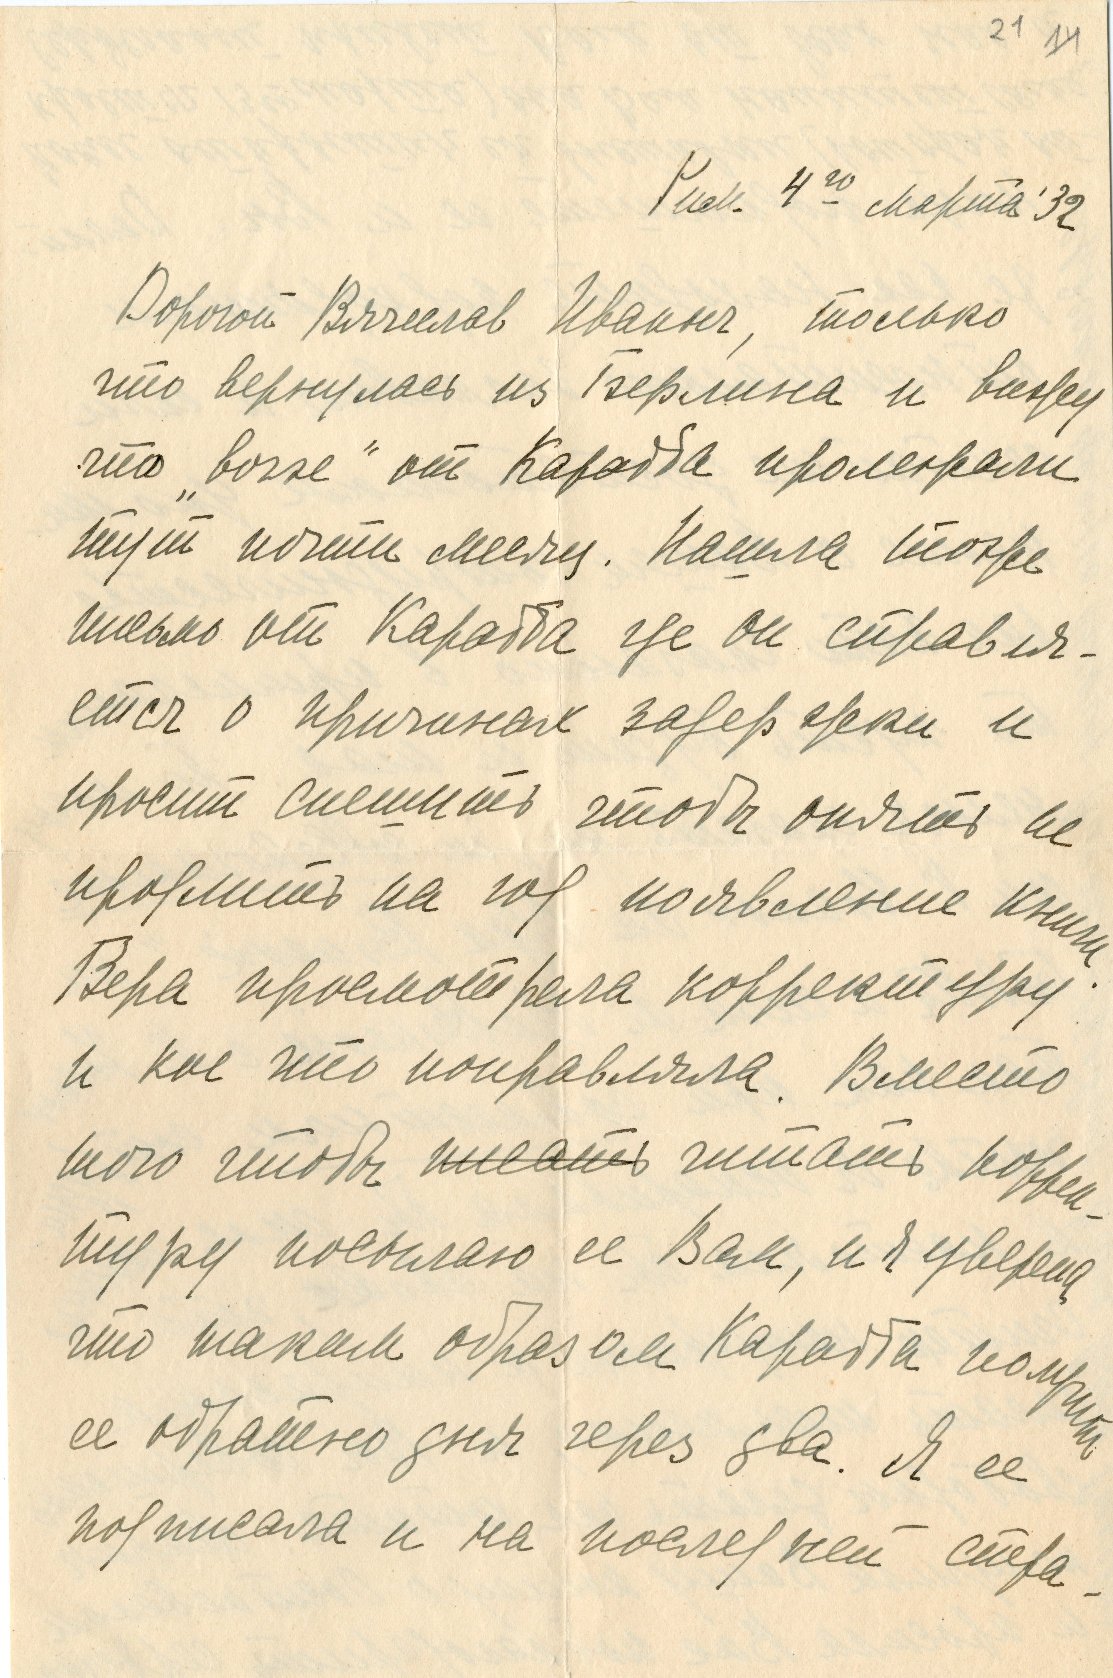 21 14
Рим. 4го марта '32
Дорогой Вячеслав Иваныч, только
что вернулась из Берлина и вижу
что „bozze“ от Карабба пролежали
тут почти месяц. Нашла тоже
письмо от Карабба где он справля-
ется о причинах задержки и
просит спешить чтобы опять не
продлить на год появление книги.
Вера просмотрела корректуру
и кое что поправляла. Вместо
того чтобы писать читать коррек-
туру посылаю ее Вам, и я уверена
что таким образом Карабба получит
ее обратно дня через два. Я ее
подписала и на последней стра-